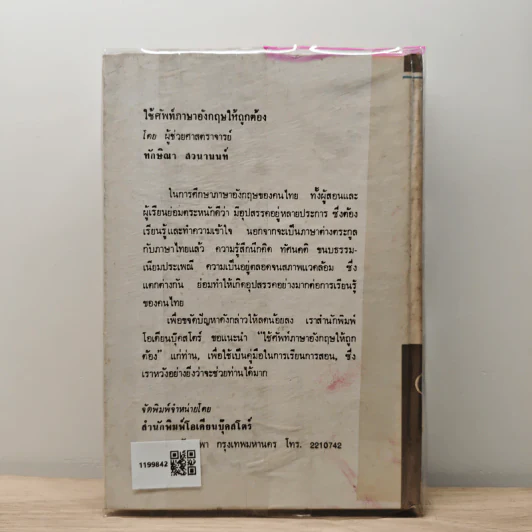 ใช้ศัพท์ภาษาอังกฤษให้ถูกต้อง
โดย ผู้ช่วยศาสตราจารย์
ทักษิณา สวนานนท์
ในการศึกษาภาษาอังกฤษของคนไทย ทั้งผู้สอนและ
ผู้เรียนย่อมตระหนักดีว่า มีอุปสรรคอยู่หลายประการ ซึ่งต้อง
เรียนรู้และทำความเข้าใจ นอกจากจะเป็นภาษาต่างตระกูล
กับภาษาไทยแล้ว ความรู้สึกนึกคิด ทัศนคติ ขนบธรรม-
เนียมประเพณี ความเป็นอยู่ตลอดจนสภาพแวดล้อม ซึ่ง
แตกต่างกัน ย่อมทำให้เกิดอุปสรรคอย่างมากต่อการเรียนรู้
ของคนไทย
เพื่อขจัดปัญหาดังกล่าวให้ลดน้อยลง เราสำนักพิมพ์
โอเดียนบุ๊คสโตร์ ขอแนะนำ "ใช้ศัพท์ภาษาอังกฤษให้ถูก
ต้อง" แก่ท่าน, เพื่อใช้เป็นคู่มือในการเรียนการสอน, ซึ่ง
เราหวังอย่างยิ่งว่าจะช่วยท่านได้มาก
จัดพิมพ์จำหน่ายโดย
สำนักพิมพ์โอเดียนบุ๊คสโตร์
กรุงเทพมหานคร โทร. 2210742
1199842